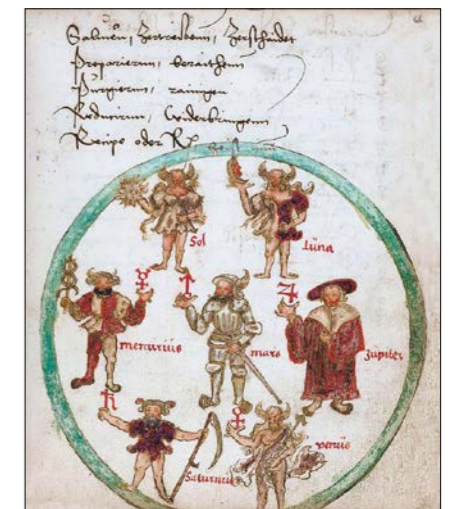 Zertreibenn, Zerschaidet
Preparierun, beraithenn
Purgierun, rainigen
Reducirun, Widerbringenn
Recipe oder Rx
Sol
Lüna
☿
♃
mercuriüs
mars
Jupiter
♄
♀
Saturnus
venüs